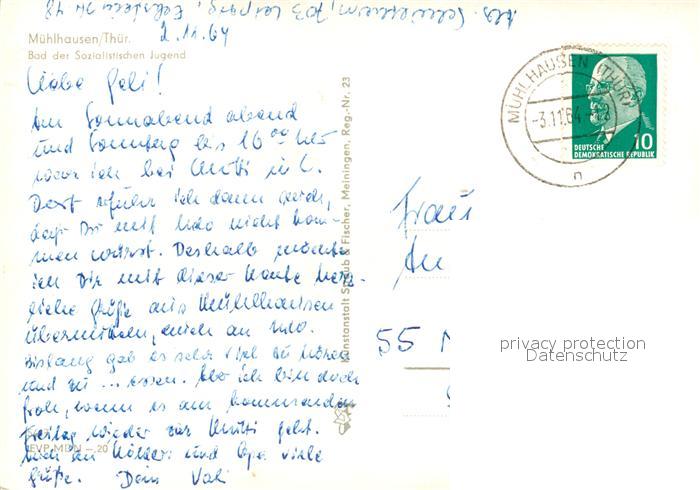 Abs. 703 Leipzig, 48
2.11.64
Mühlhausen/Thür.
Bad der Sozialistischen Jugend
Liebe Geli!
Am Sonnabend abend
und Sonntag bis 16 00 Uhr
war ich bei Mutti in L.
Dort erfuhr ich dann auch,
daß Du mit Udo nicht kom-
men würdest. Deshalb möchte
ich Dir mit dieser Karte herz-
liche Grüße aus Mühlhausen
übermitteln, auch an Udo.
Bislang gab es sehr viel zu hören
und zu ... essen. Aber ich bin doch
froh, wenn es am kommenden
Freitag wieder zur Mutti geht.
Auch an und Opa viele
Grüße. Dein
EVP MDN -.20
Kunstanstalt Straub & Fischer, Meiningen, Reg.-Nr. 23
MÜHLHAUSEN (THÜR)
-3.11.64
n
10
DEUTSCHE
DEMOKRATISCHE REPUBLIK
Frau
55
privacy protection
Datenschutz